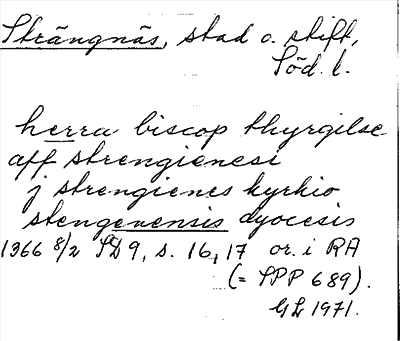 Strängnäs, stad o. stift,
Söd. l.
herra biscop thyrgilse
aff strengienesi
j strengienes kyrkio
stengenensis dyocesis
1366 8/2 SD 9, s. 16, 17 or. i RA
(= SPP 689).
GL 1971.